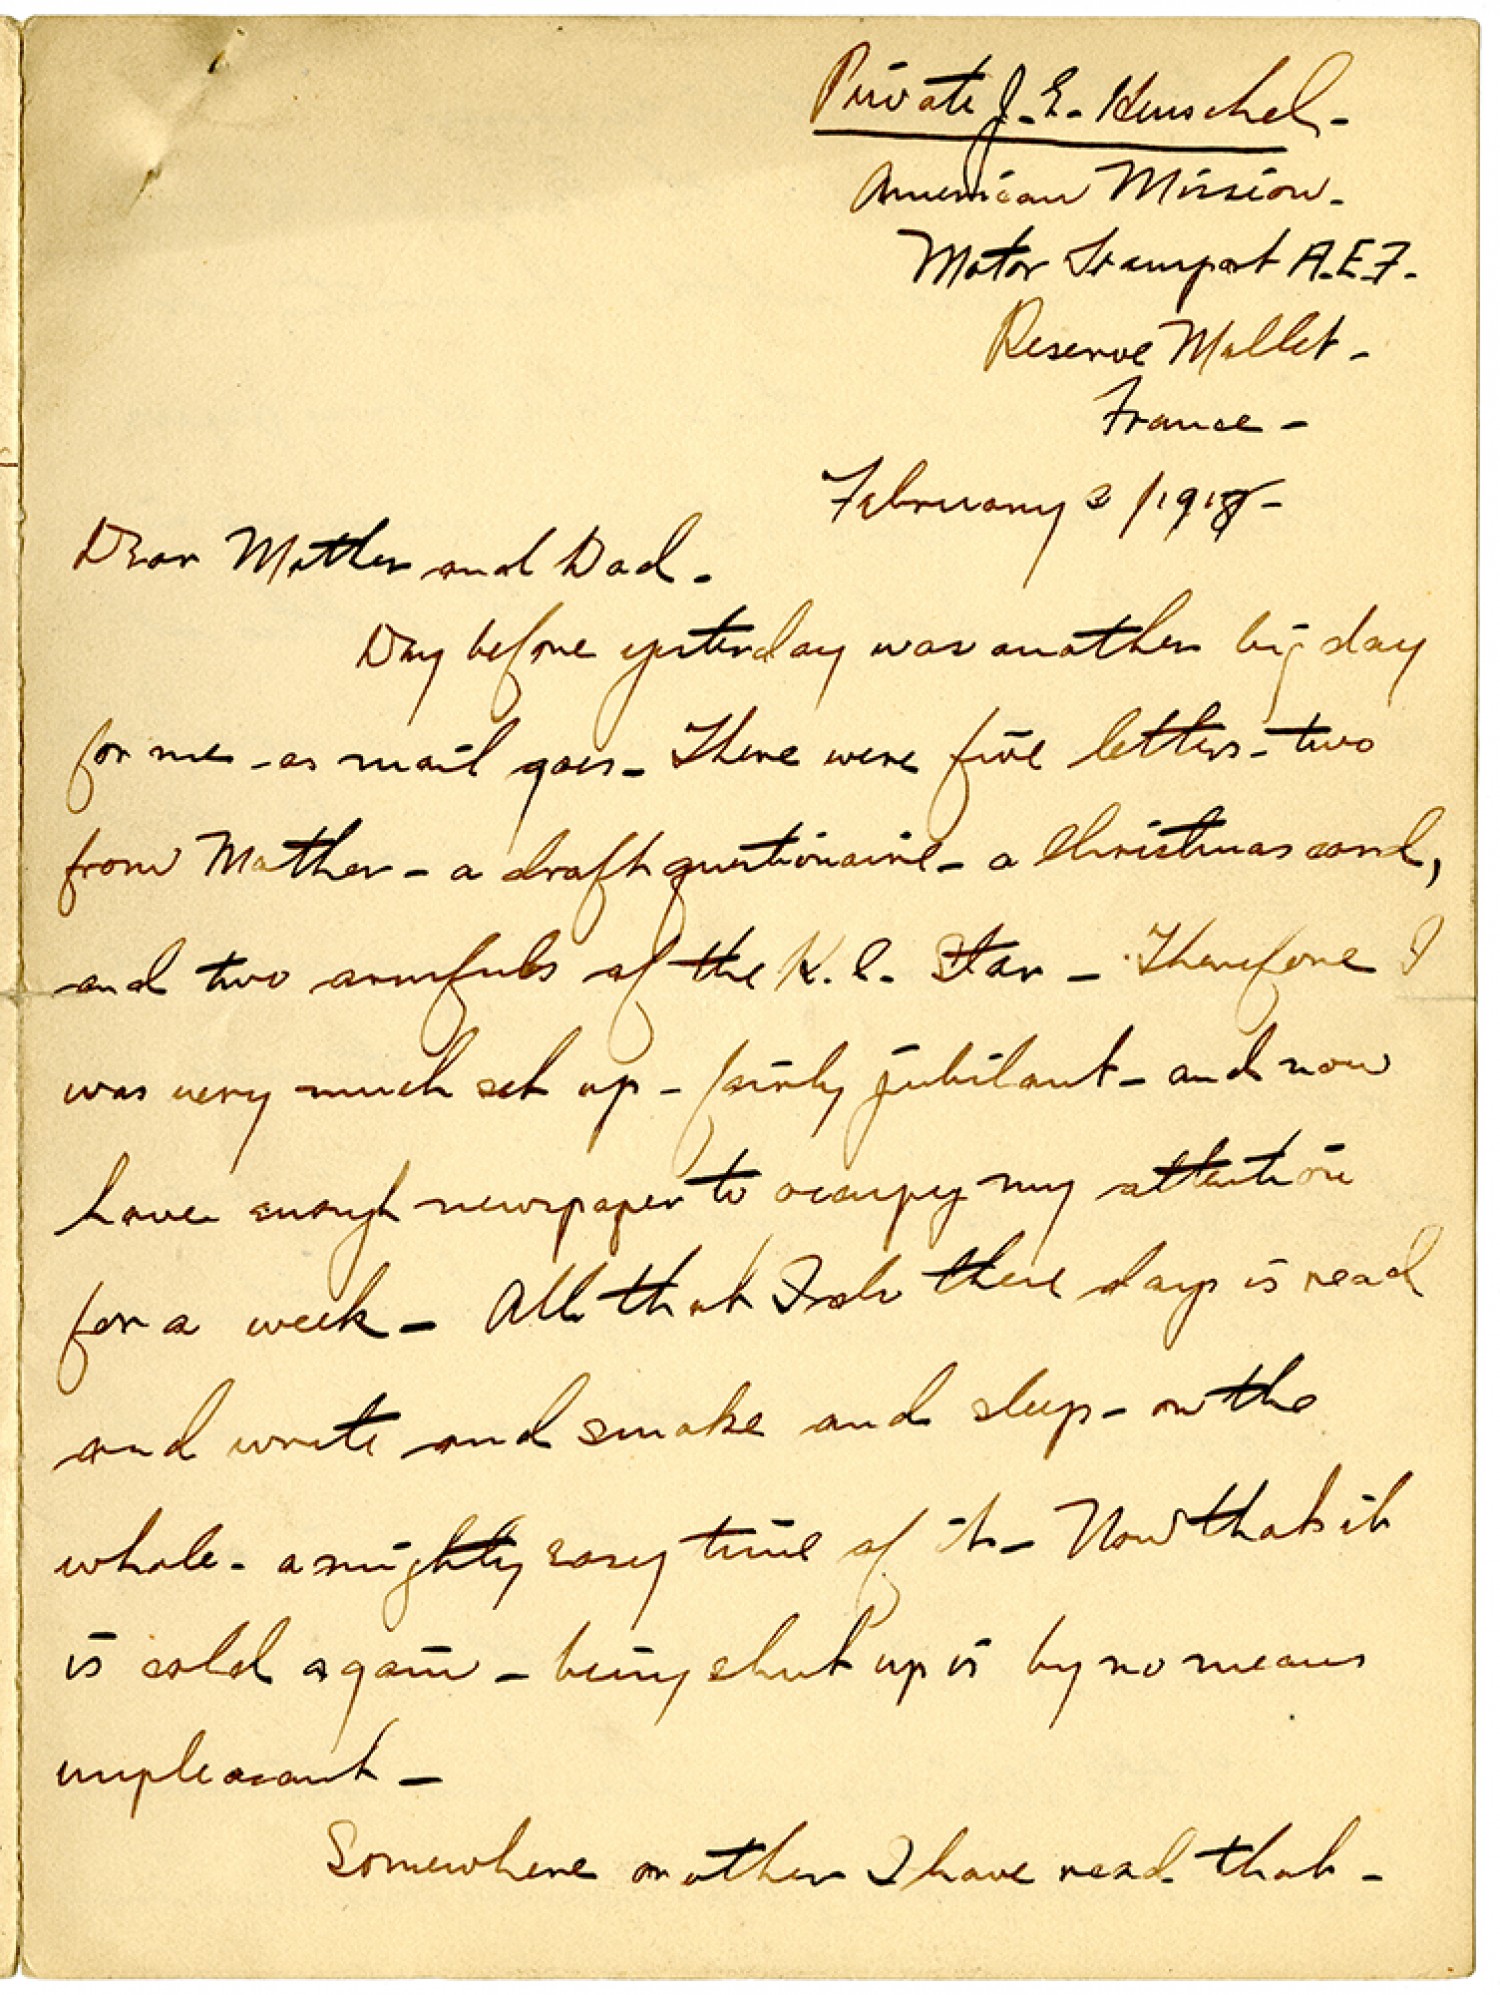 Private J. E. Henschel -
American Mission -
Motor Transport A.E.F. -
Reserve Mallet -
France -
February 2/1918 -
Dear Mother and Dad -
Day before yesterday was another big day
for me - as mail goes - There were five letters - two
from Mother - a draft questionaire - a Christmas card,
and two armfuls of the K.C. Star - Therefore I
was very much set up - fairly jubilant - and now
have enough newspaper to occupy my attention
for a week - All that I do these days is read
and write and smoke and sleep - on the
whole - a mighty easy time of it - Now that it
is cold again - being shut up is by no means
unpleasant -
Somewhere or other I have read that -